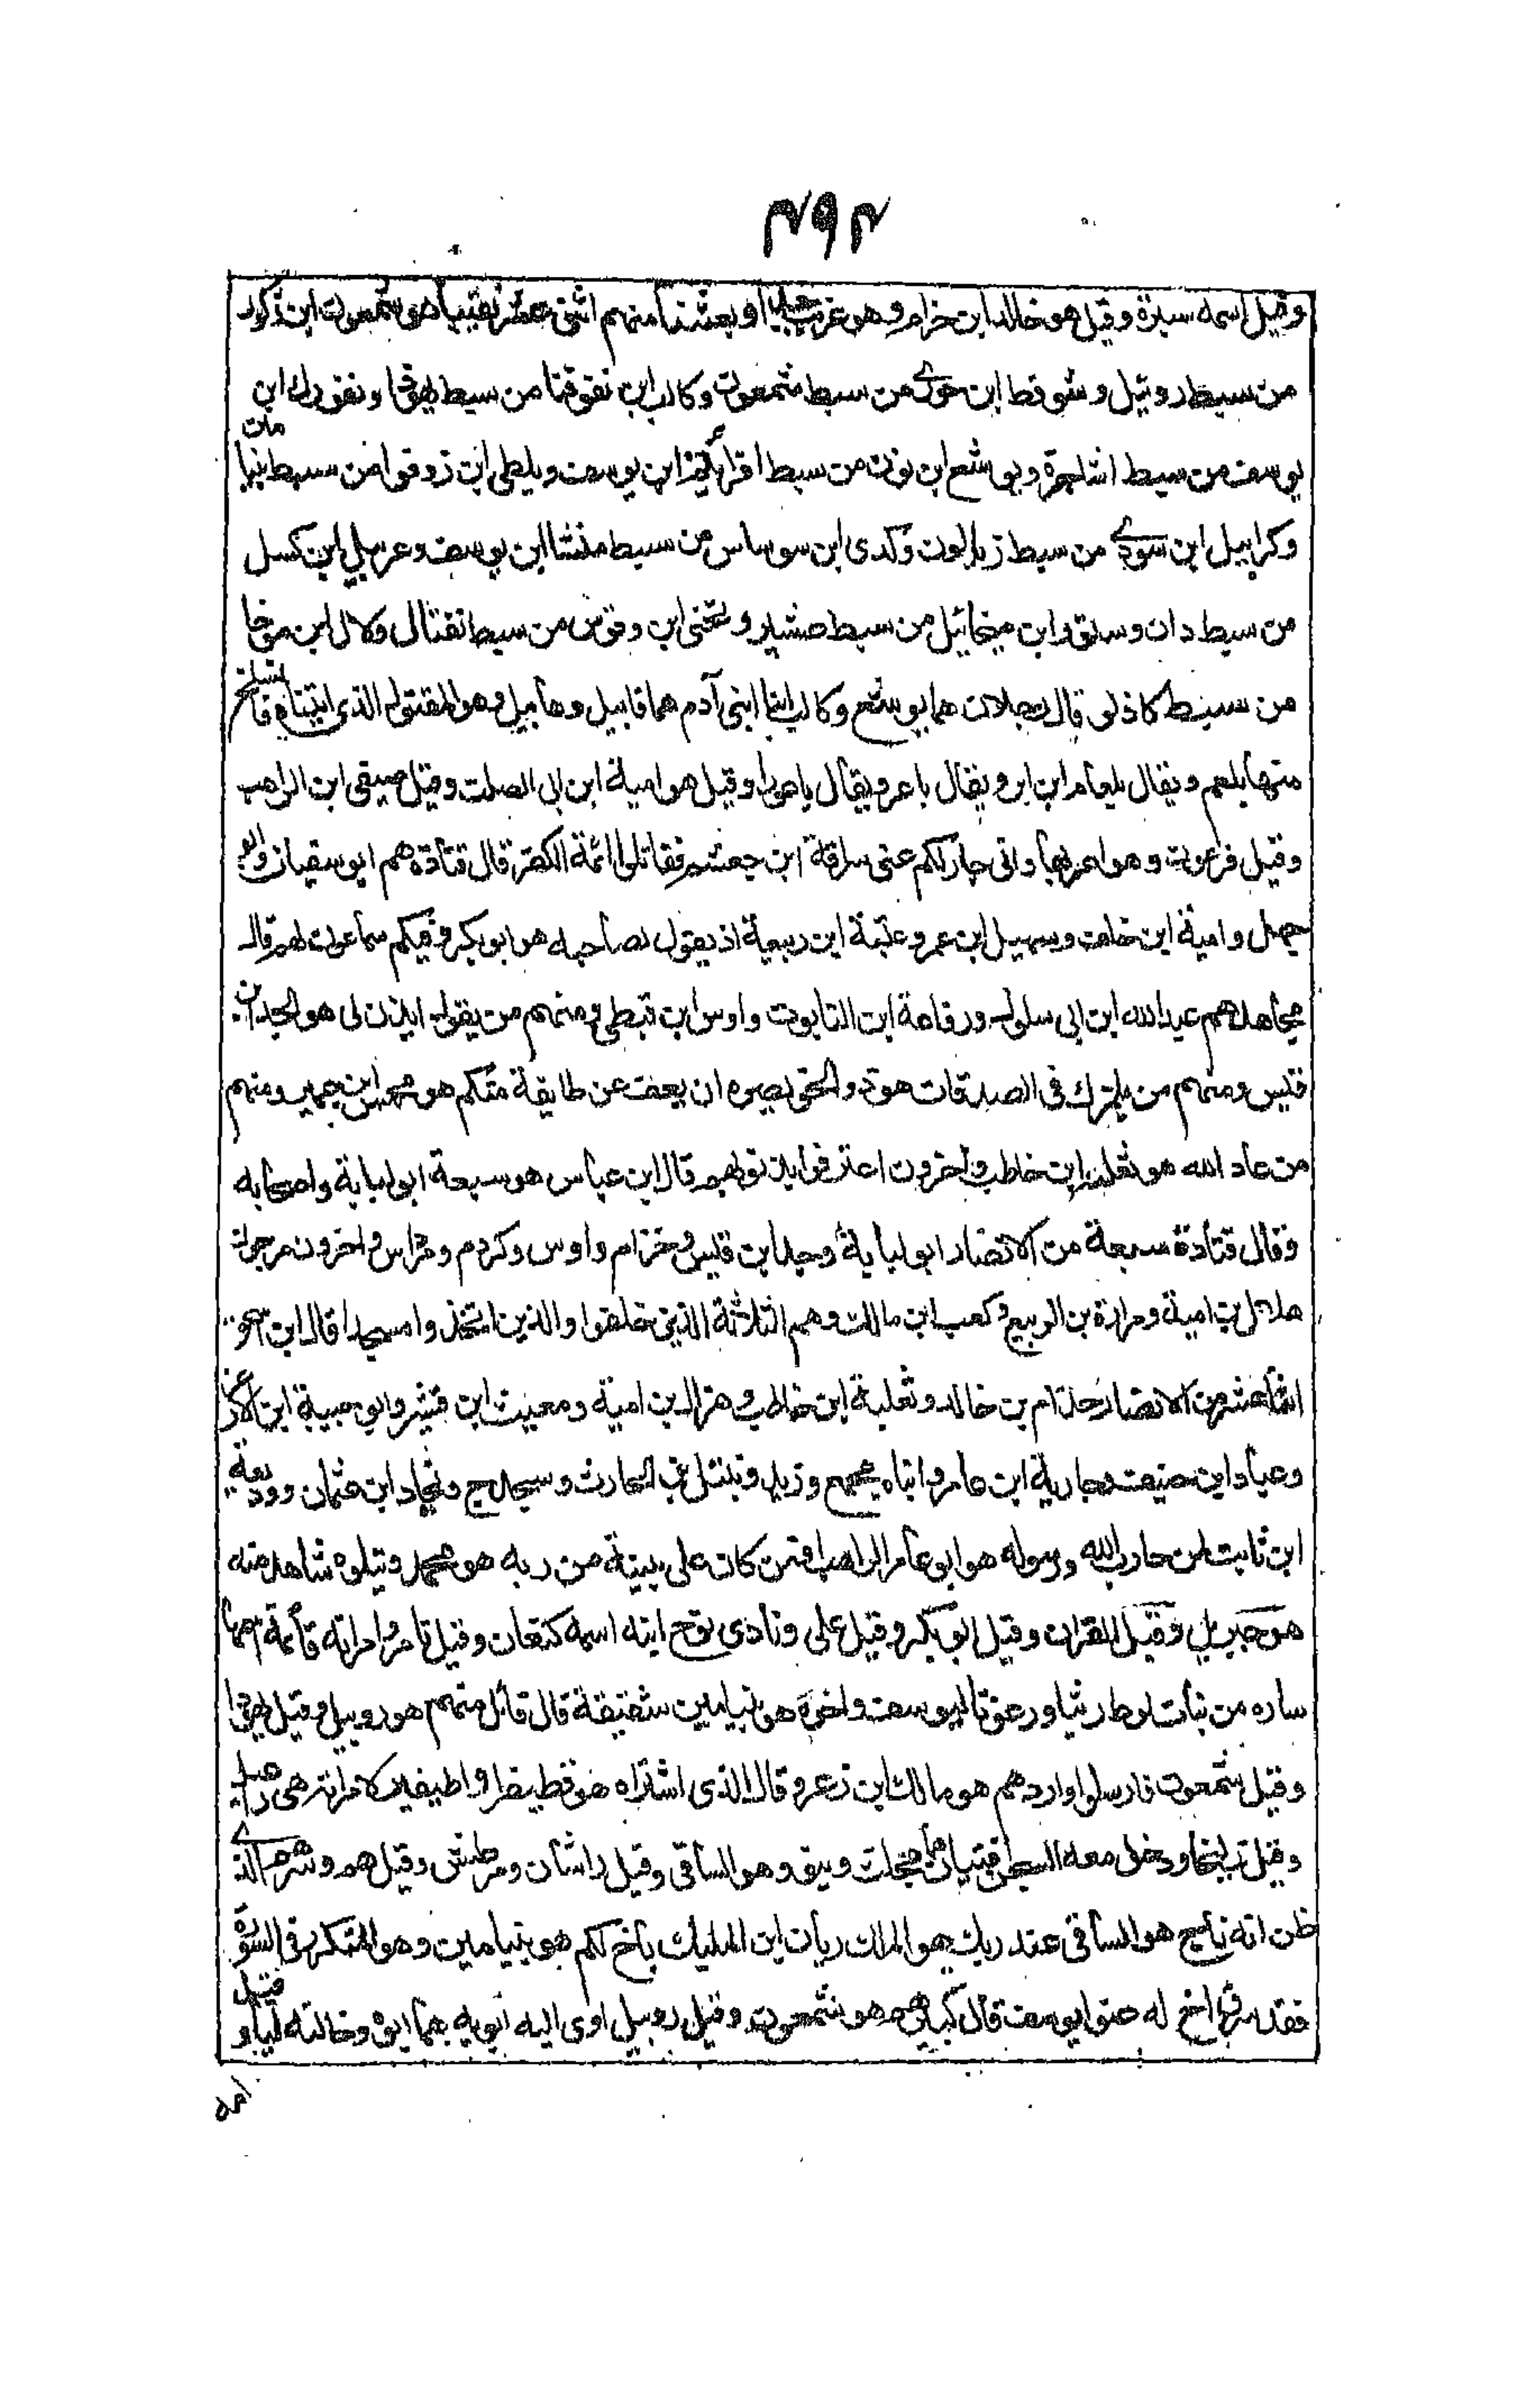 وقيل اسمه سبرة وقيل هو خالد ابن حزام وهو غريب جدا وبعثنا منهم اثنى عشر نقيبا هو شمعون ابن زكور
من سبط روئيل وشوقط ابن حوري من سبط شمعون وكالب ابن نفوقنا من سبط يهوذا ونفورك ابن
يوسف من سبط اشاجرة ويوشع ابن نون من سبط افرائيم ابن يوسف ويلطى ابن زوقوا من سبط بنيامن
وكرابيل ابن سودي من سبط زبالون وكدى ابن سوساس من سبط منشا ابن يوسف وعمرييل ابن كسل
من سبط دان وستور ابن ميخائيل من سبط اشير ويحنى ابن وقوس من سبط نفتال وال ابن موخا
من سبط كاذلو قال رجلان هما يوشع وكالب ابنا ابنى آدم هما قابيل وهابيل وهو المقتول الذى اتيناه فانسلخ
منها بلعم ويقال بلعام ابن ابر ويقال باعر ويقال باعورا وقيل هو امية ابن ابى الصلت وقيل صيفى ابن الراهب
وقيل فرعون وهو اغربها وانى جار لكم عنى سراقة ابن جعشم فقاتلوا ائمة الكفر قال قتادة هم ابو سفيان وابو
جهل وامية ابن خلف وسهيل ابن عمرو عتبة ابن ربيعة اذ يقول لصاحبه هو ابو بكر وفيكم سماعون لهم قال
مجاهد هم عبد الله ابن ابى سلول ورفاعة ابن التابوت واوس ابن قيظى ومنهم من يقول ايذن لى هو الجد بن
قيس ومنهم من يلمزك فى الصدقات هو ذو الخويصره ان يعف عن طايفة منكم هو مخشى ابن حمير ومنهم
من عاد الله هو ثعلبة ابن حاطب واخرون اعترفوا بذنوبهم قال ابن عباس هو سبعة ابو لبابة واصحابه
وقال قتادة سبعة من الانصار ابو لبابة وجد ابن قيس وخزام واوس وكردم ومرداس واخرون مرجون
هلال بن امية ومرارة بن الربيع وكعب ابن مالك وهم الثلاثة الذين خلفوا والذين اتخذوا مسجدا قال ابن اسحق
اثنا عشر من الانصار خذام بن خالد وثعلبة ابن حاطب وهزال بن امية ومعتب ابن قشير وابو حبيبة ابن الازعر
وعباد ابن حنيف وجارية ابن عامر وابناه مجمع وزيد ونبتل بن الحارث وبحزج وبجاد ابن عثمان ووديعة
ابن ثابت لمن حارب الله ورسوله هو ابو عامر الراهب افمن كان على بينة من ربه هو محمد ويتلوه شاهد منه
هو جبريل وقيل القران وقيل ابو بكر وقيل على ونادى نوح ابنه اسمه كنعان وقيل يام وامراته قائمة اسمها
ساره من بنات لوط ريثا ورغوثا ليوسف واخوه هو بنيامين شقيقه قال قائل منهم هو روبيل وقيل يهوذا
وقيل شمعون فارسلوا واردهم هو مالك ابن زعر وقال الذى اشتراه هو قطيفر او اطيفير لامراته هى راعيل
وقيل زليخا ودخل معه السجن فتيان هما مجلث وبنو وهو الساقى وقيل راشان ومرطش وقيل هم وشرهم الذي
ظن انه ناج هو الساقى عند ربك هو الملك ريان ابن الوليد باخ لكم هو بنيامين وهو المتكرر فى السورة
فقد سرق اخ له عنوا يوسف قال كبيرهم هو شمعون وقيل روبيل اوى اليه ابويه هما ابوه وخالته ليا وقيل